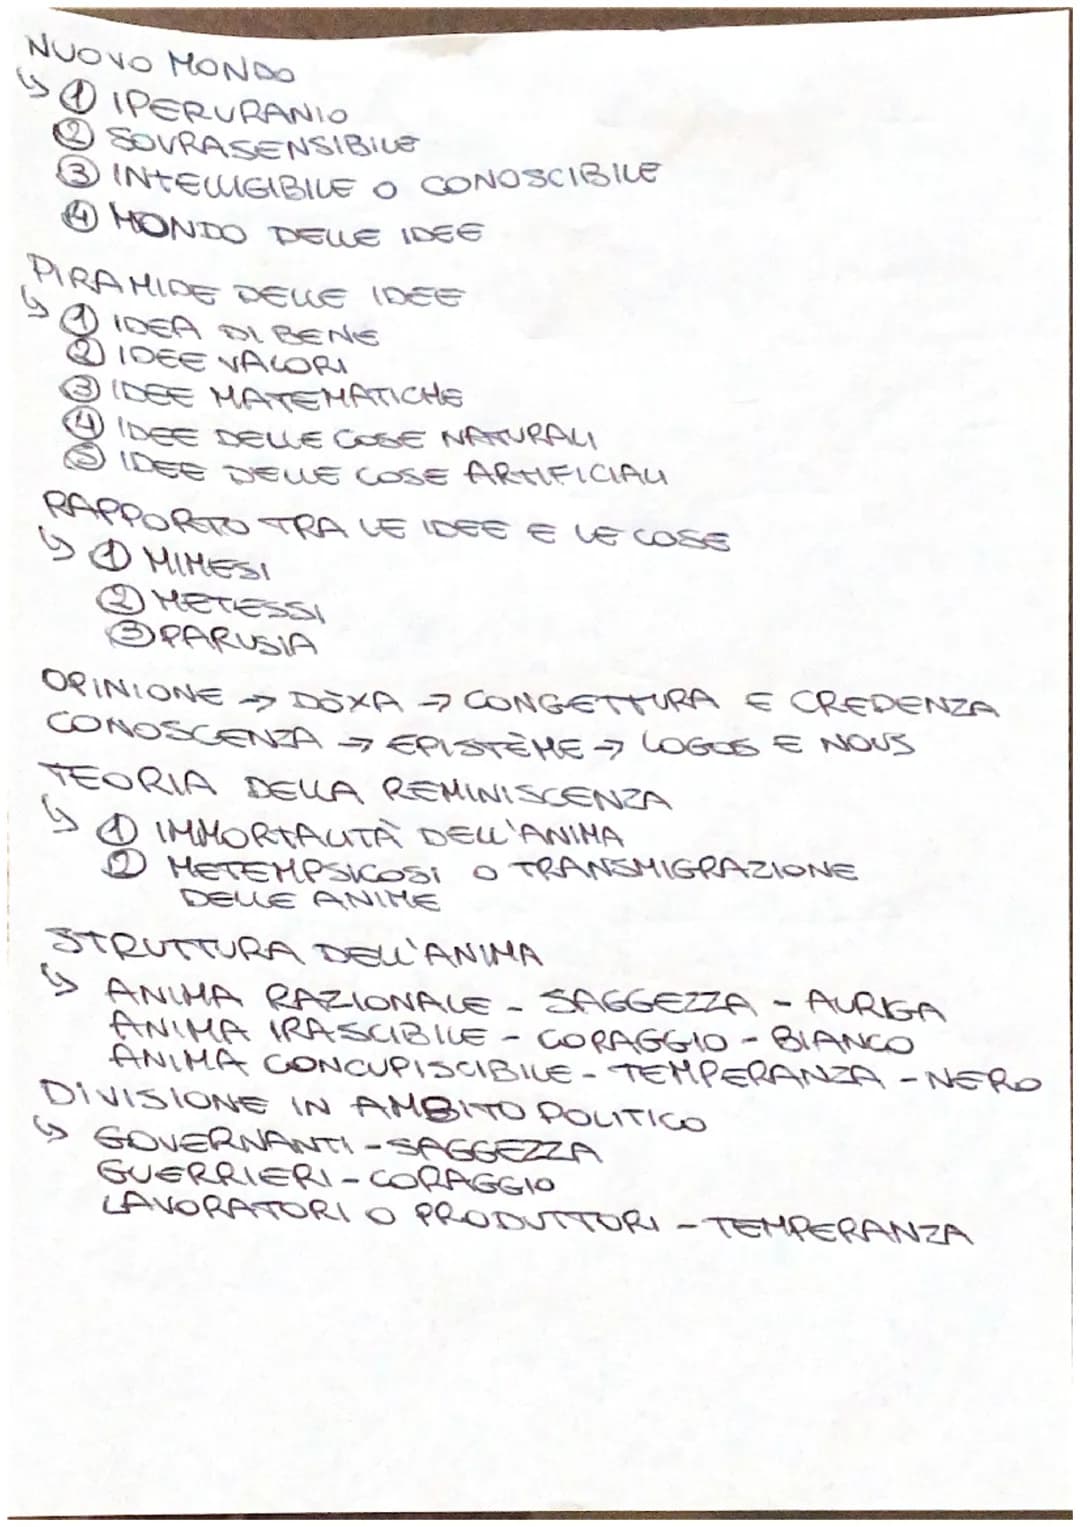 NUOVO MONDO
↳ ① IPERURANIO
② SOVRASENSIBILE
③ INTELLIGIBILE O CONOSCIBILE
④ MONDO DELLE IDEE
PIRAMIDE DELLE IDEE
↳ ① IDEA DI BENE
② IDEE VALORI
③ IDEE MATEMATICHE
④ IDEE DELLE COSE NATURALI
⑤ IDEE DELLE COSE ARTIFICIALI
RAPPORTO TRA LE IDEE E LE COSE
↳ ① MIMESI
② METESSI
③ PARUSIA
OPINIONE → DÒXA → CONGETTURA E CREDENZA
CONOSCENZA → EPISTÈME → LOGOS E NOUS
TEORIA DELLA REMINISCENZA
↳ ① IMMORTALITÀ DELL'ANIMA
② METEMPSICOSI O TRANSMIGRAZIONE
DELLE ANIME
STRUTTURA DELL'ANIMA
↳ ANIMA RAZIONALE - SAGGEZZA - AURIGA
ANIMA IRASCIBILE - CORAGGIO - BIANCO
ANIMA CONCUPISCIBILE - TEMPERANZA - NERO
DIVISIONE IN AMBITO POLITICO
↳ GOVERNANTI - SAGGEZZA
GUERRIERI - CORAGGIO
LAVORATORI O PRODUTTORI - TEMPERANZA